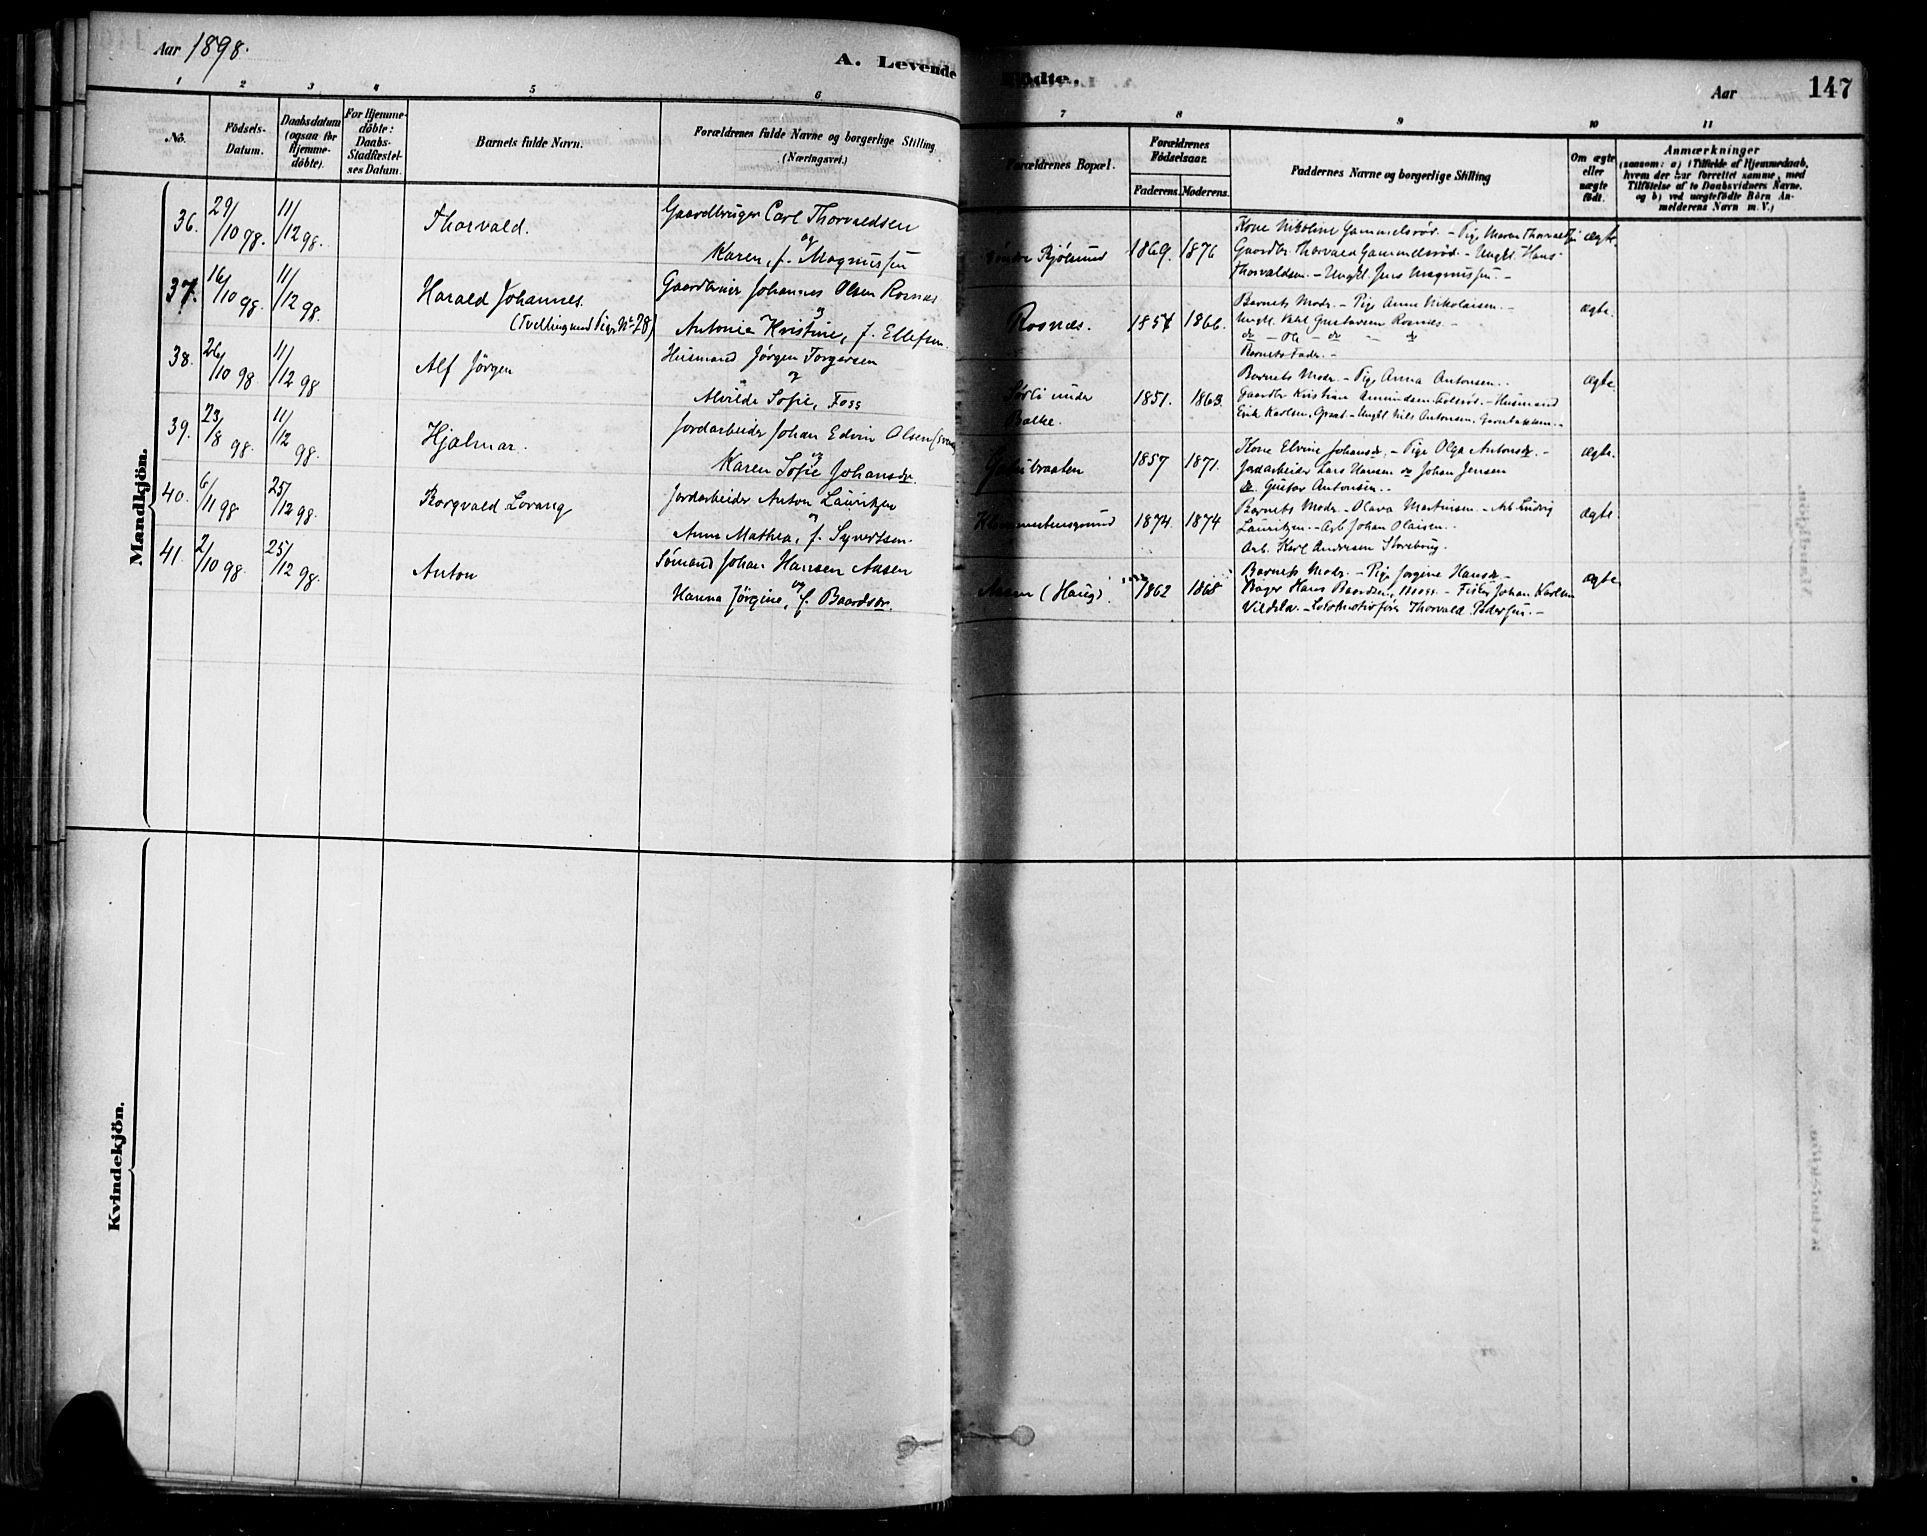 Aar 1898.
A. Levende
Födte.
Aar
147
1 2 3 4 5 6
7 8 9 10 11
No.
Födsels-
Datum.
Daabsdatum
(ogsaa for
Hjemme-
döbte).
For Hjemme-
döbte:
Daabs-
Stadfæstel-
ses Datum.
Barnets fulde Navn.
Forældrenes fulde Navne og borgerlige Stilling
(Næringsvei.)
Forældrenes Bopæl.
Forældrenes
Födselsaar.
Faderens. Moderens.
Faddernes Navne og borgerlige Stilling
Om ægte
eller
uægte
födt.
Anmærkninger
(saasom: a) i Tilfælde af Hjemmedaab,
hvem der har forrettet samme, med
Tilföielse af to Daabsvidners Navne,
og b) ved uægtefödte Börn An-
melderens Navn m. V.)
Mandkjön.
36. 29/10 98. 11/12 98. Thorvald. Gaardbruger Carl Thorvaldsen
og
Karen, f. Magnussen
1869. 1876
Kone Nikoline Gammelsrød. - Pige Maren
Gaardbr. Thorvald Gammelsrød. - Ungkl. Hans
Thorvaldsen. - Ungkl. Jens Magnussen -
ægte.
37. 16/10 98. 11/12 98. Harald Johannes.
(Tvilling med Pige No 28)
Gaardbruger Johannes Olsen Rosnæs
og
Antonia Kristine, f. Ellefsen.
Rosnæs. 1857 1866.
Barnets Modr. - Pige Anne Nikolaisen. -
Ungkl. Gustavsen Rosnæs. -
do - Ole - do - do
Barnets Fadr. -
ægte.
38. 26/10 98. 11/12 98 Alf Jörgen Husmand Jörgen Torgersen
og
Alvilde Sofie, Foss
Sørli under
Balke.
1851. 1863.
Barnets Modr. - Pige Anna Antonsen. -
Gaardbr Kristian Amundsen - Husmand
Erik Karlsen, - Ungkl. Nils Antonsen,
ægte
39. 23/8 98. 11/12 98. Hjalmar. Jordarbeider Johan Edvin Olsen
og
Karen Sofie Johansdr.
1857 1871.
Kone Elvine Johansdr. - Pige Olga Antonsdr. -
Jordarbeider Lars Hansen do Johan Jensen
do. Gustav Antonsen. -
ægte.
40. 6/11 98. 25/12 98. Borgvald Lorang Jordarbeider Anton Lauritzen
og
Anne Mathea, f. Syvertsen.
1874. 1874
Barnets Modr. - Olava Martinsen. - Arb. Ludvig
Lauritzen. - Arb. Johan Olaisen. -
Arb. Karl Andresen Storebraug.
ægte.
41. 2/10 98. 25/12 98. Anton Sömand Johan Hansen Aasen
og
Hanna Jörgine, f. Baardsdr.
Aasen (Haug). 1862 1868
Barnets Modr. - Pige Jorgine Hansdr. -
Bager Hans Baardsen, Moss. - Fisker Johan Karlsen
- Lokomotivfører Thorvald Pedersen. -
ægte
Kvindekjön.